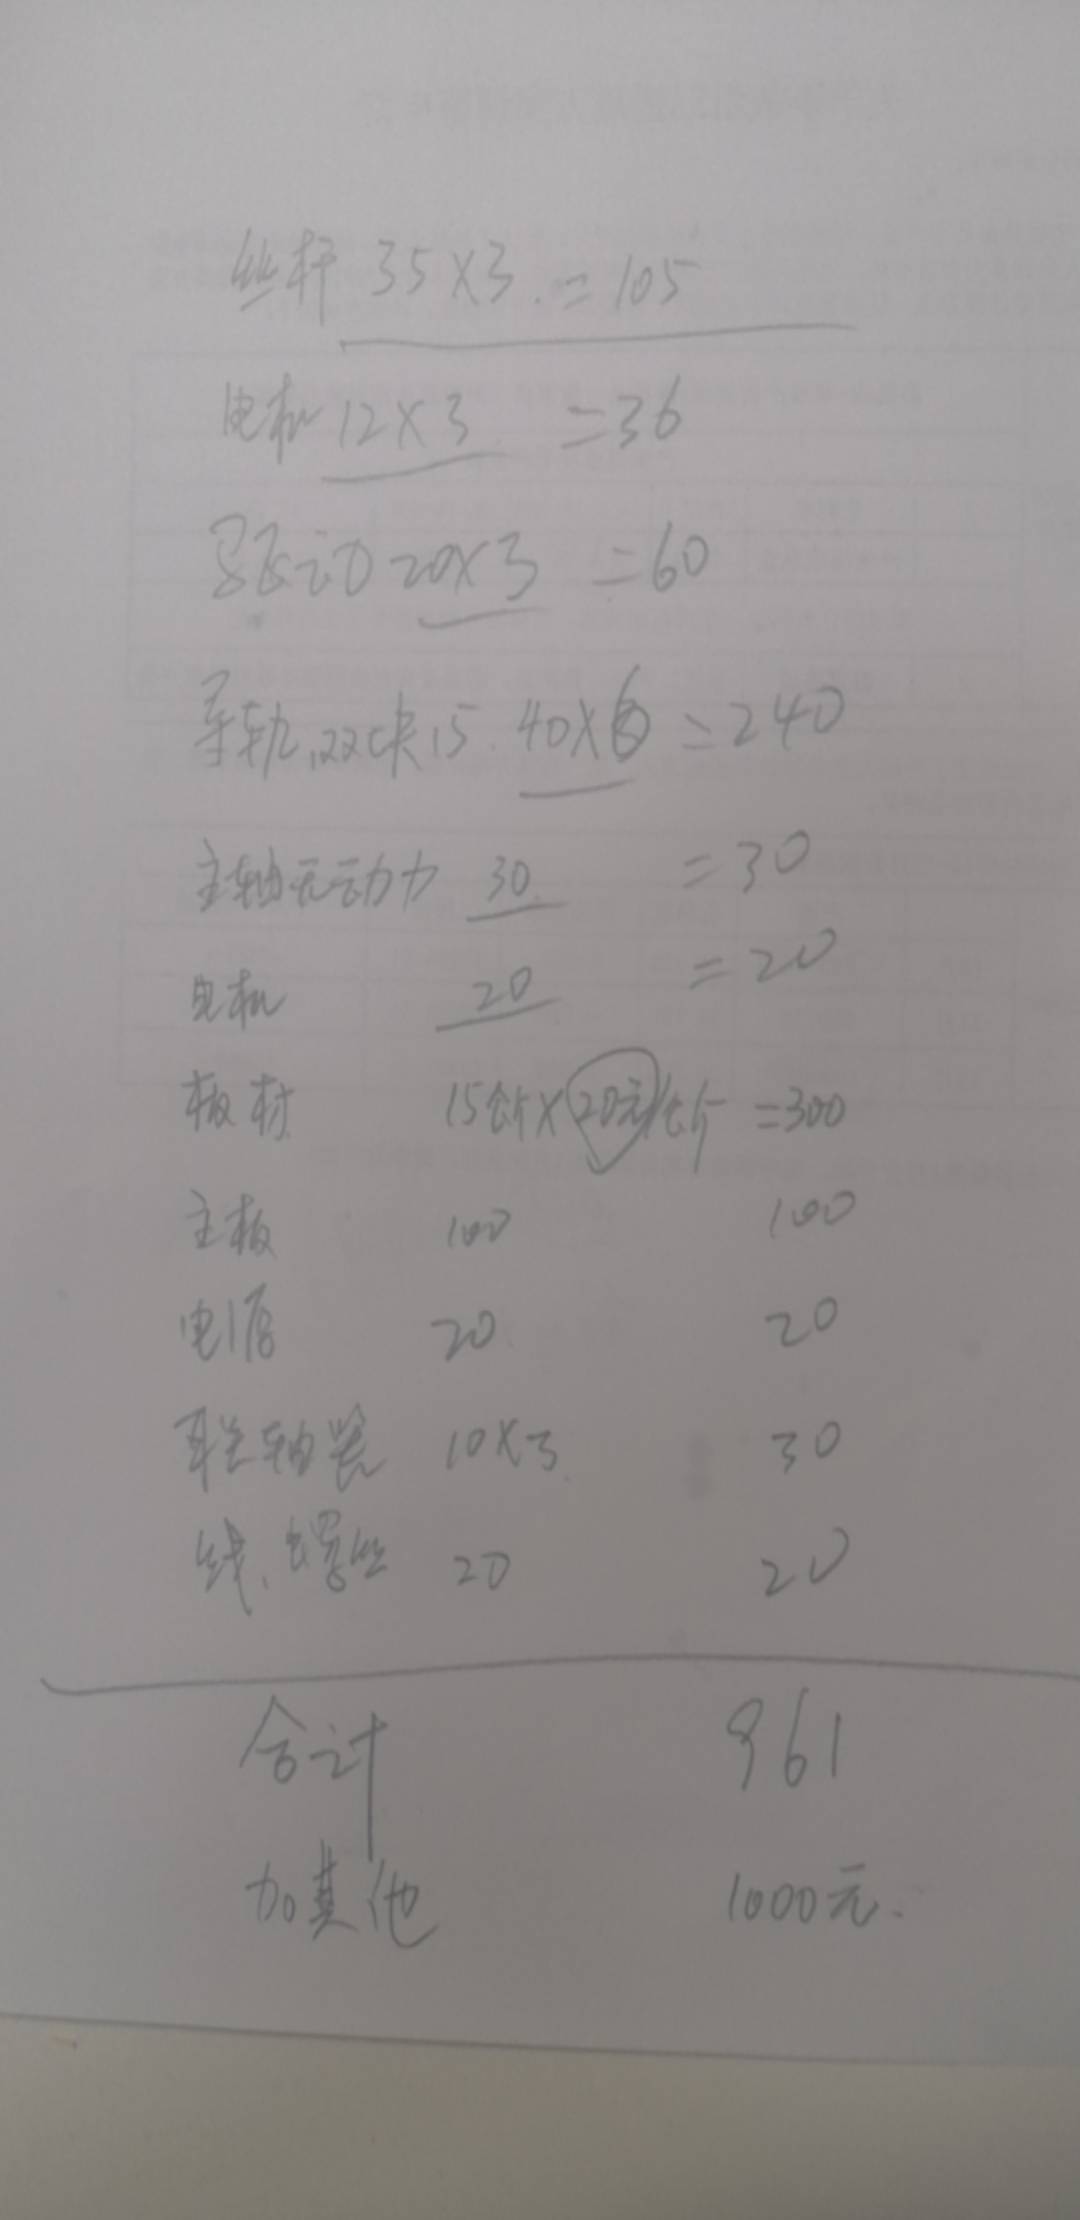 丝杆 35×3.=105
电机 12×3 =36
驱动 20×3 =60
导轨,双块15. 40×6 =240
主轴无动力 30. =30
电机 20 =20
板材 15公斤×20元/公斤 =300
主板 100 100
电源 20 20
联轴器 10×3. 30
线、螺丝 20 20
合计 961
加其他 1000元.